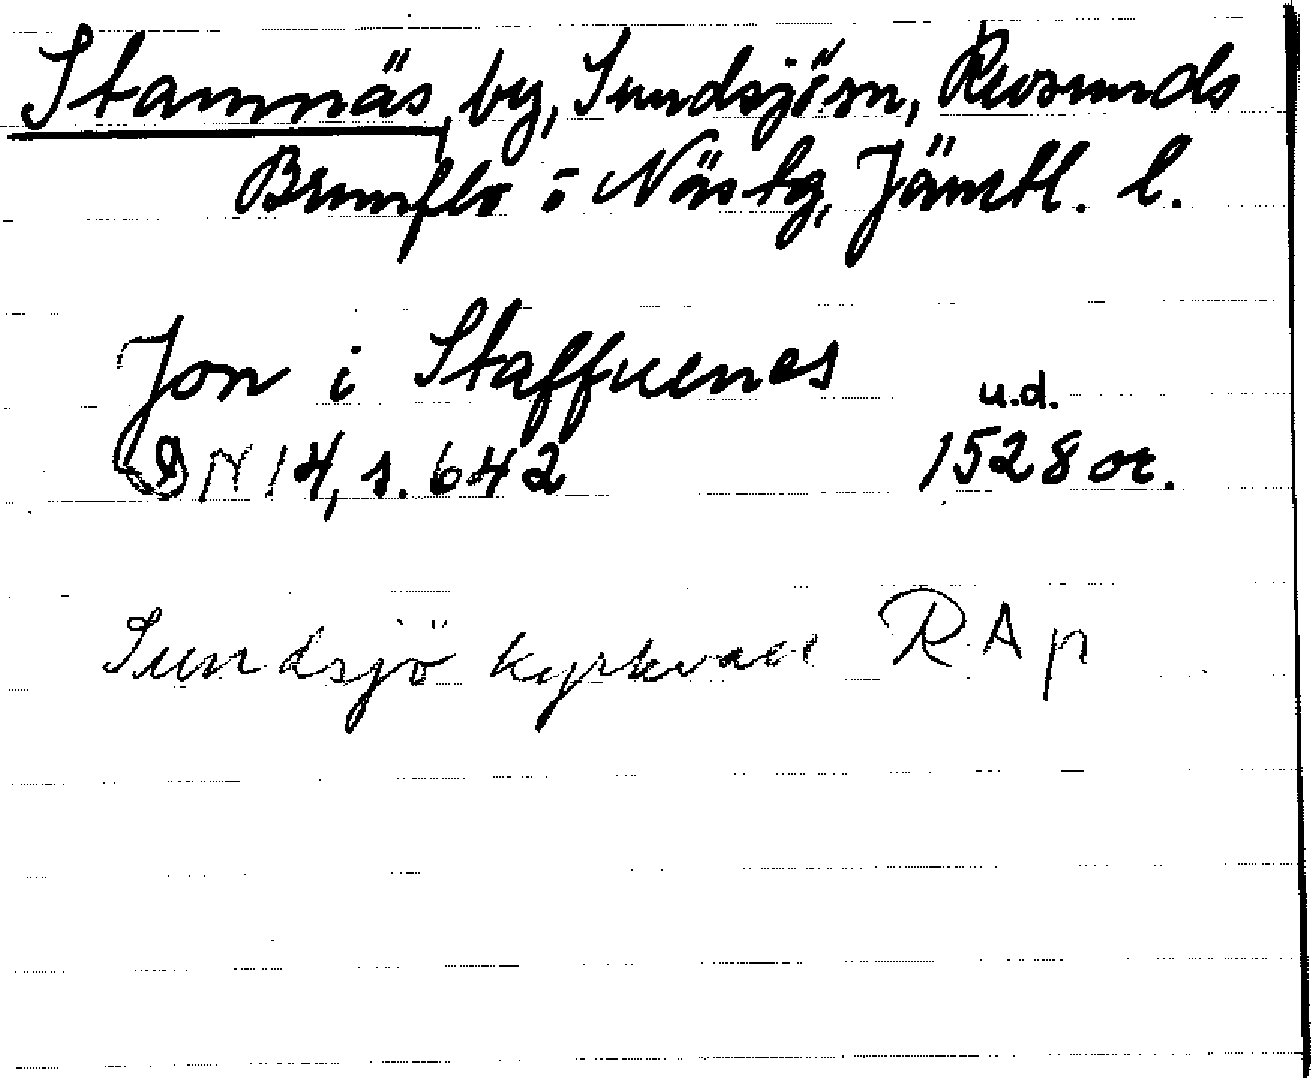 Stamnäs, by, Sundsjö sn, Revsunds
Brunflo o Näs tg, Jämtl. l.
Jon i Staffuenes
u.d.
DN 14, s. 642 1528 or.
Sundsjö kyrkvall RAp